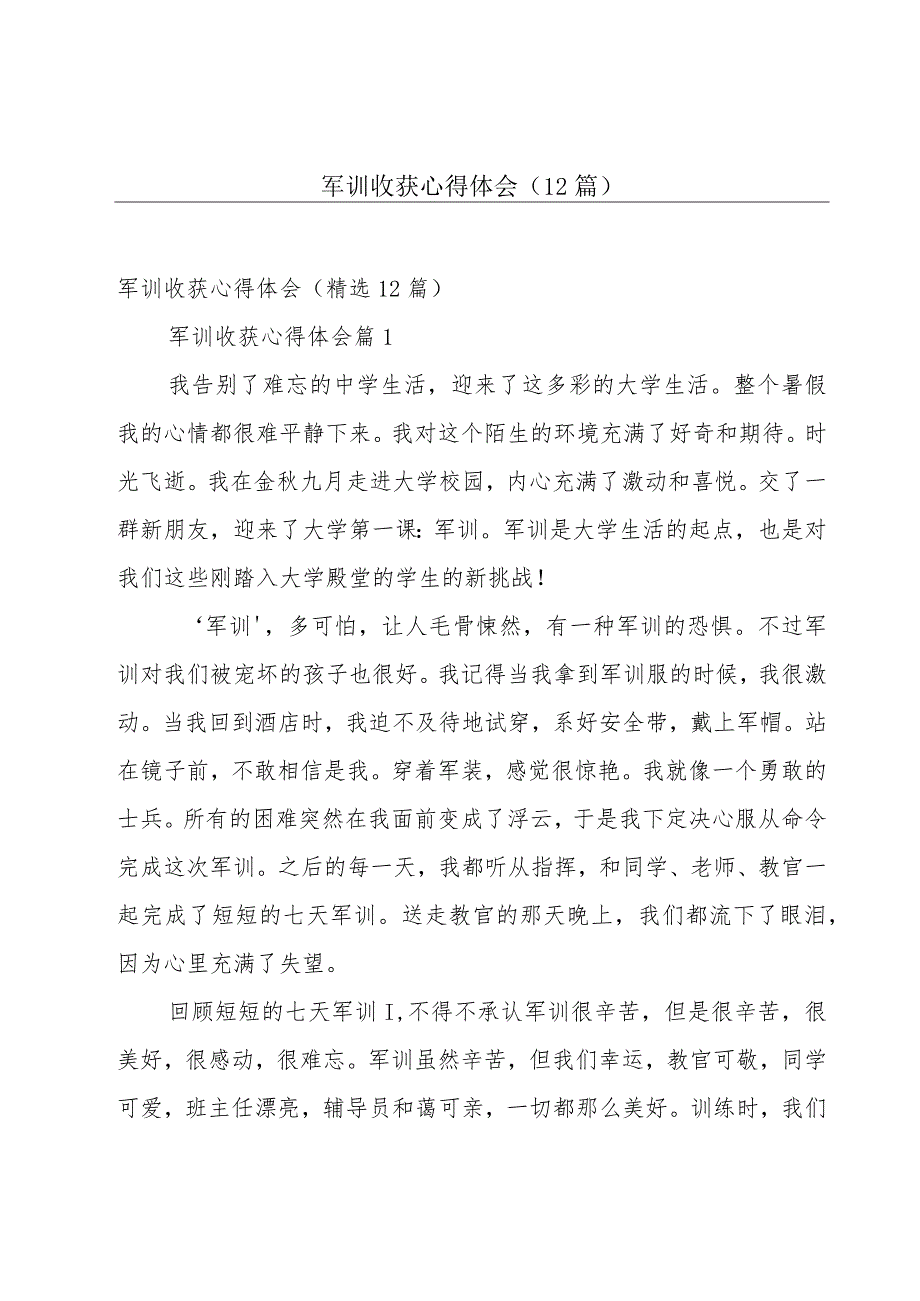 军训收获心得体会（12篇）
军训收获心得体会（精选12篇）
军训收获心得体会篇1
我告别了难忘的中学生活，迎来了这多彩的大学生活。整个暑假
我的心情都很难平静下来。我对这个陌生的环境充满了好奇和期待。时
光飞逝。我在金秋九月走进大学校园，内心充满了激动和喜悦。交了一
群新朋友，迎来了大学第一课：军训。军训是大学生活的起点，也是对
我们这些刚踏入大学殿堂的学生的新挑战！
‘军训'，多可怕，让人毛骨悚然，有一种军训的恐惧。不过军
训对我们被宠坏的孩子也很好。我记得当我拿到军训服的时候，我很激
动。当我回到酒店时，我迫不及待地试穿，系好安全带，戴上军帽。站
在镜子前，不敢相信是我。穿着军装，感觉很惊艳。我就像一个勇敢的
士兵。所有的困难突然在我面前变成了浮云，于是我下定决心服从命令
完成这次军训。之后的每一天，我都听从指挥，和同学、老师、教官一
起完成了短短的七天军训。送走教官的那天晚上，我们都流下了眼泪，
因为心里充满了失望。
回顾短短的七天军训I,不得不承认军训很辛苦，但是很辛苦，很
美好，很感动，很难忘。军训虽然辛苦，但我们幸运，教官可敬，同学
可爱，班主任漂亮，辅导员和蔼可亲，一切都那么美好。训练时，我们